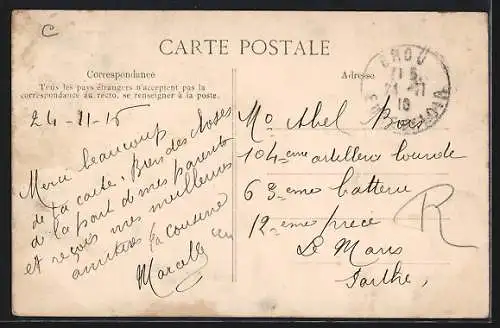 C
CARTE POSTALE
Correspondance
Tous les pays étrangers n'acceptent pas la
correspondance au recto, se renseigner à la poste.
24-11-15
Merci beaucoup
de ta carte. Bien des choses
de la part d mes parents
et reçois mes meilleures
amitiés ta cousine
Marcelle
Adresse
BROU
Mr Abel
104 eme artillerie lourde
63 eme batterie
12 eme piece
Le Mans
Sarthe,
R